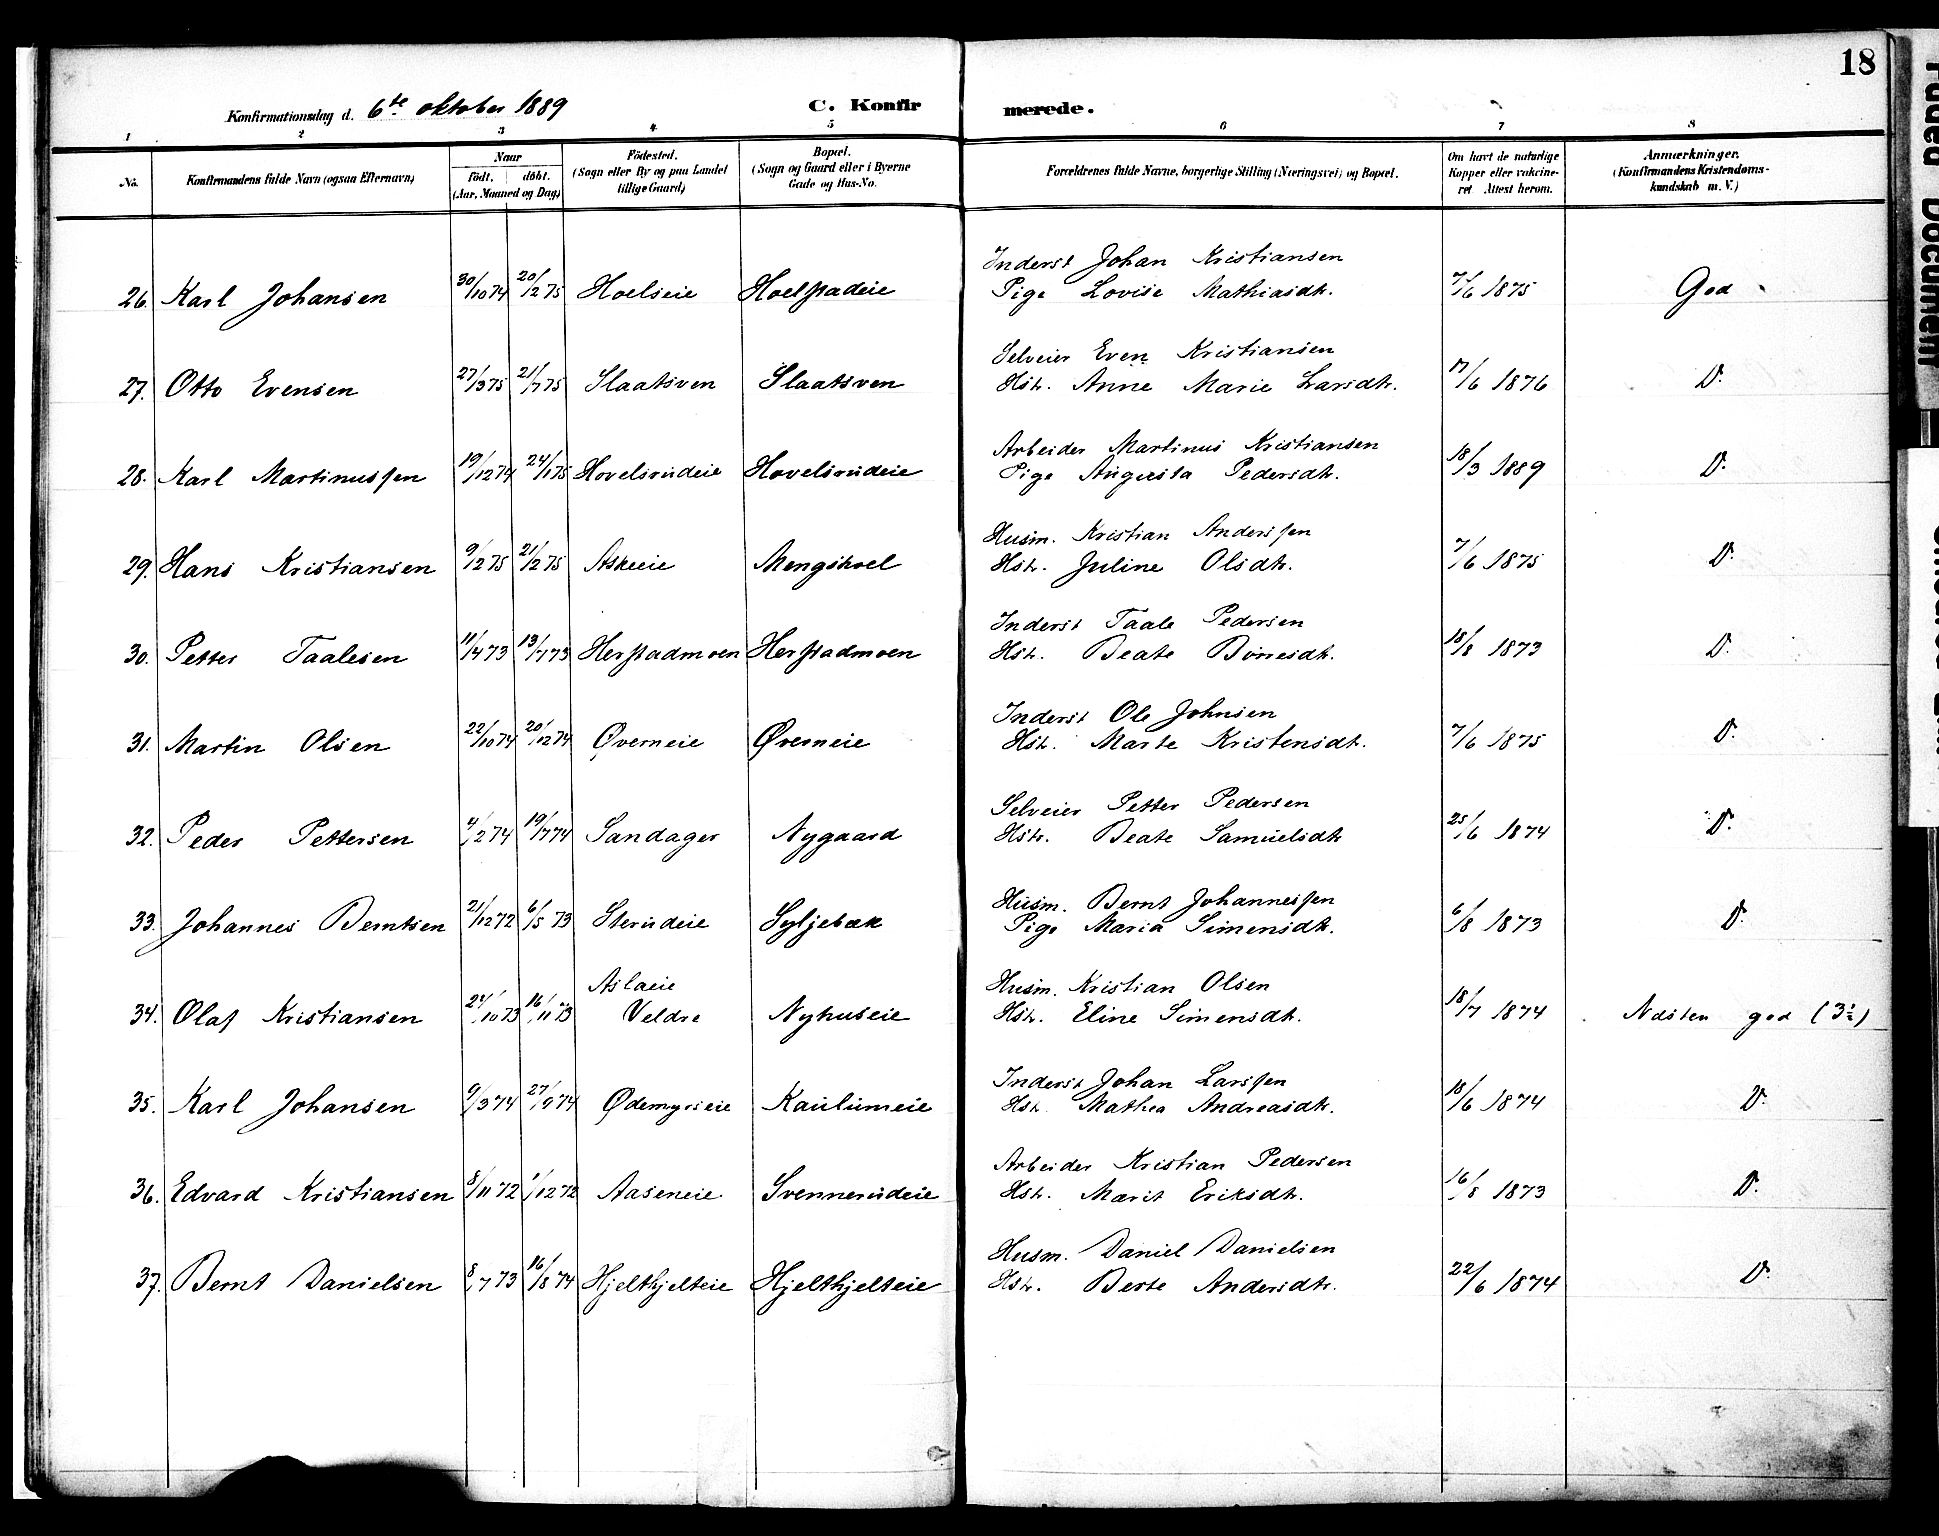 18
Konfirmationsdag d. 6te oktober 1889
C. Konfirmerede.
1 2 3 4 5 6 7 8
No. Konfirmandens fulde Navn (ogsaa Efternavn) Naar Født, døbt. (Aar, Maaned og Dag) Fødested. (Sogn eller By og paa Landet tillige Gaard) Bopæl. (Sogn og Gaard eller i Byerne Gade og Hus-No. Forældrenes fulde Navne, borgerlige Stilling (Næringsvei) og Bopæl. Om havt de naturlige Kopper eller vakcineret Attest herom. Anmærkninger. (Konfirmandens Kristendomskundskab m. V.)
Inderst Johan Kristiansen
26. Karl Johansen 30/10 74 20/2 75 Hoelseie Hoelstadeie Pige Lovise Mathiasdtr. 7/6 1875 God
Selveier Even Kristiansen
27. Otto Evensen 27/3 75 21/7 75 Slaatsven Slaatsven Hstr. Anne Marie Larsdtr. 17/6 1876 D.
Arbeider Martinus Kristiansen
28. Karl Martinussen 19/12 74 24/1 75 Hovelsrudeie Hovelsrudeie Pige Augusta Pedersdtr. 18/3 1889 D.
Husm. Kristian Anderssen
29. Hans Kristiansen 9/2 75 21/2 75 Askeie Mengshoel Hstr. Juline Olsdtr. 7/6 1875 D.
Inderst Taale Pedersen
30. Petter Taalesen 11/4 73 13/7 73 Herstadmoen Herstadmoen Hstr. Beate Börresdtr. 18/8 1873 D.
Inderst Ole Johnsen
31. Martin Olsen 22/10 74 20/12 74 Øverneie Øverneie Hstr. Marte Kristensdtr. 7/6 1875 D.
Selveier Petter Pedersen
32. Peder Pettersen 4/2 74 19/7 74 Sandager Nygaard Hstr. Beate Samuelsdtr 25/6 1874 D.
Husm. Bernt Johannessen
33. Johannes Berntsen 21/12 72 6/5 73 Sterudeie Syljebæk Pige Maria Simensdtr. 6/8 1873 D.
Aslaeie Husm. Kristian Olsen
34. Olaf Kristiansen 24/10 73 16/11 73 Veldre Nyhuseie Hstr. Eline Simensdtr. 18/7 1874 Næsten god (3½)
Inderst Johan Larssen
35. Karl Johansen 9/3 74 27/9 74 Ødemyrseie Kaulumeie Hstr. Mathea Andreasdtr. 18/6 1874 D.
Arbeider Kristian Pedersen
36. Edvard Kristiansen 8/11 72 1/12 72 Aaseneie Svennerudeie Hstr. Marit Eriksdtr. 16/8 1873 D.
Husm. Daniel Danielsen
37. Bernt Danielsen 8/7 73 16/8 74 Hjelthjelteie Hjelthjelteie Hstr. Berte Andersdtr. 22/6 1874 D.